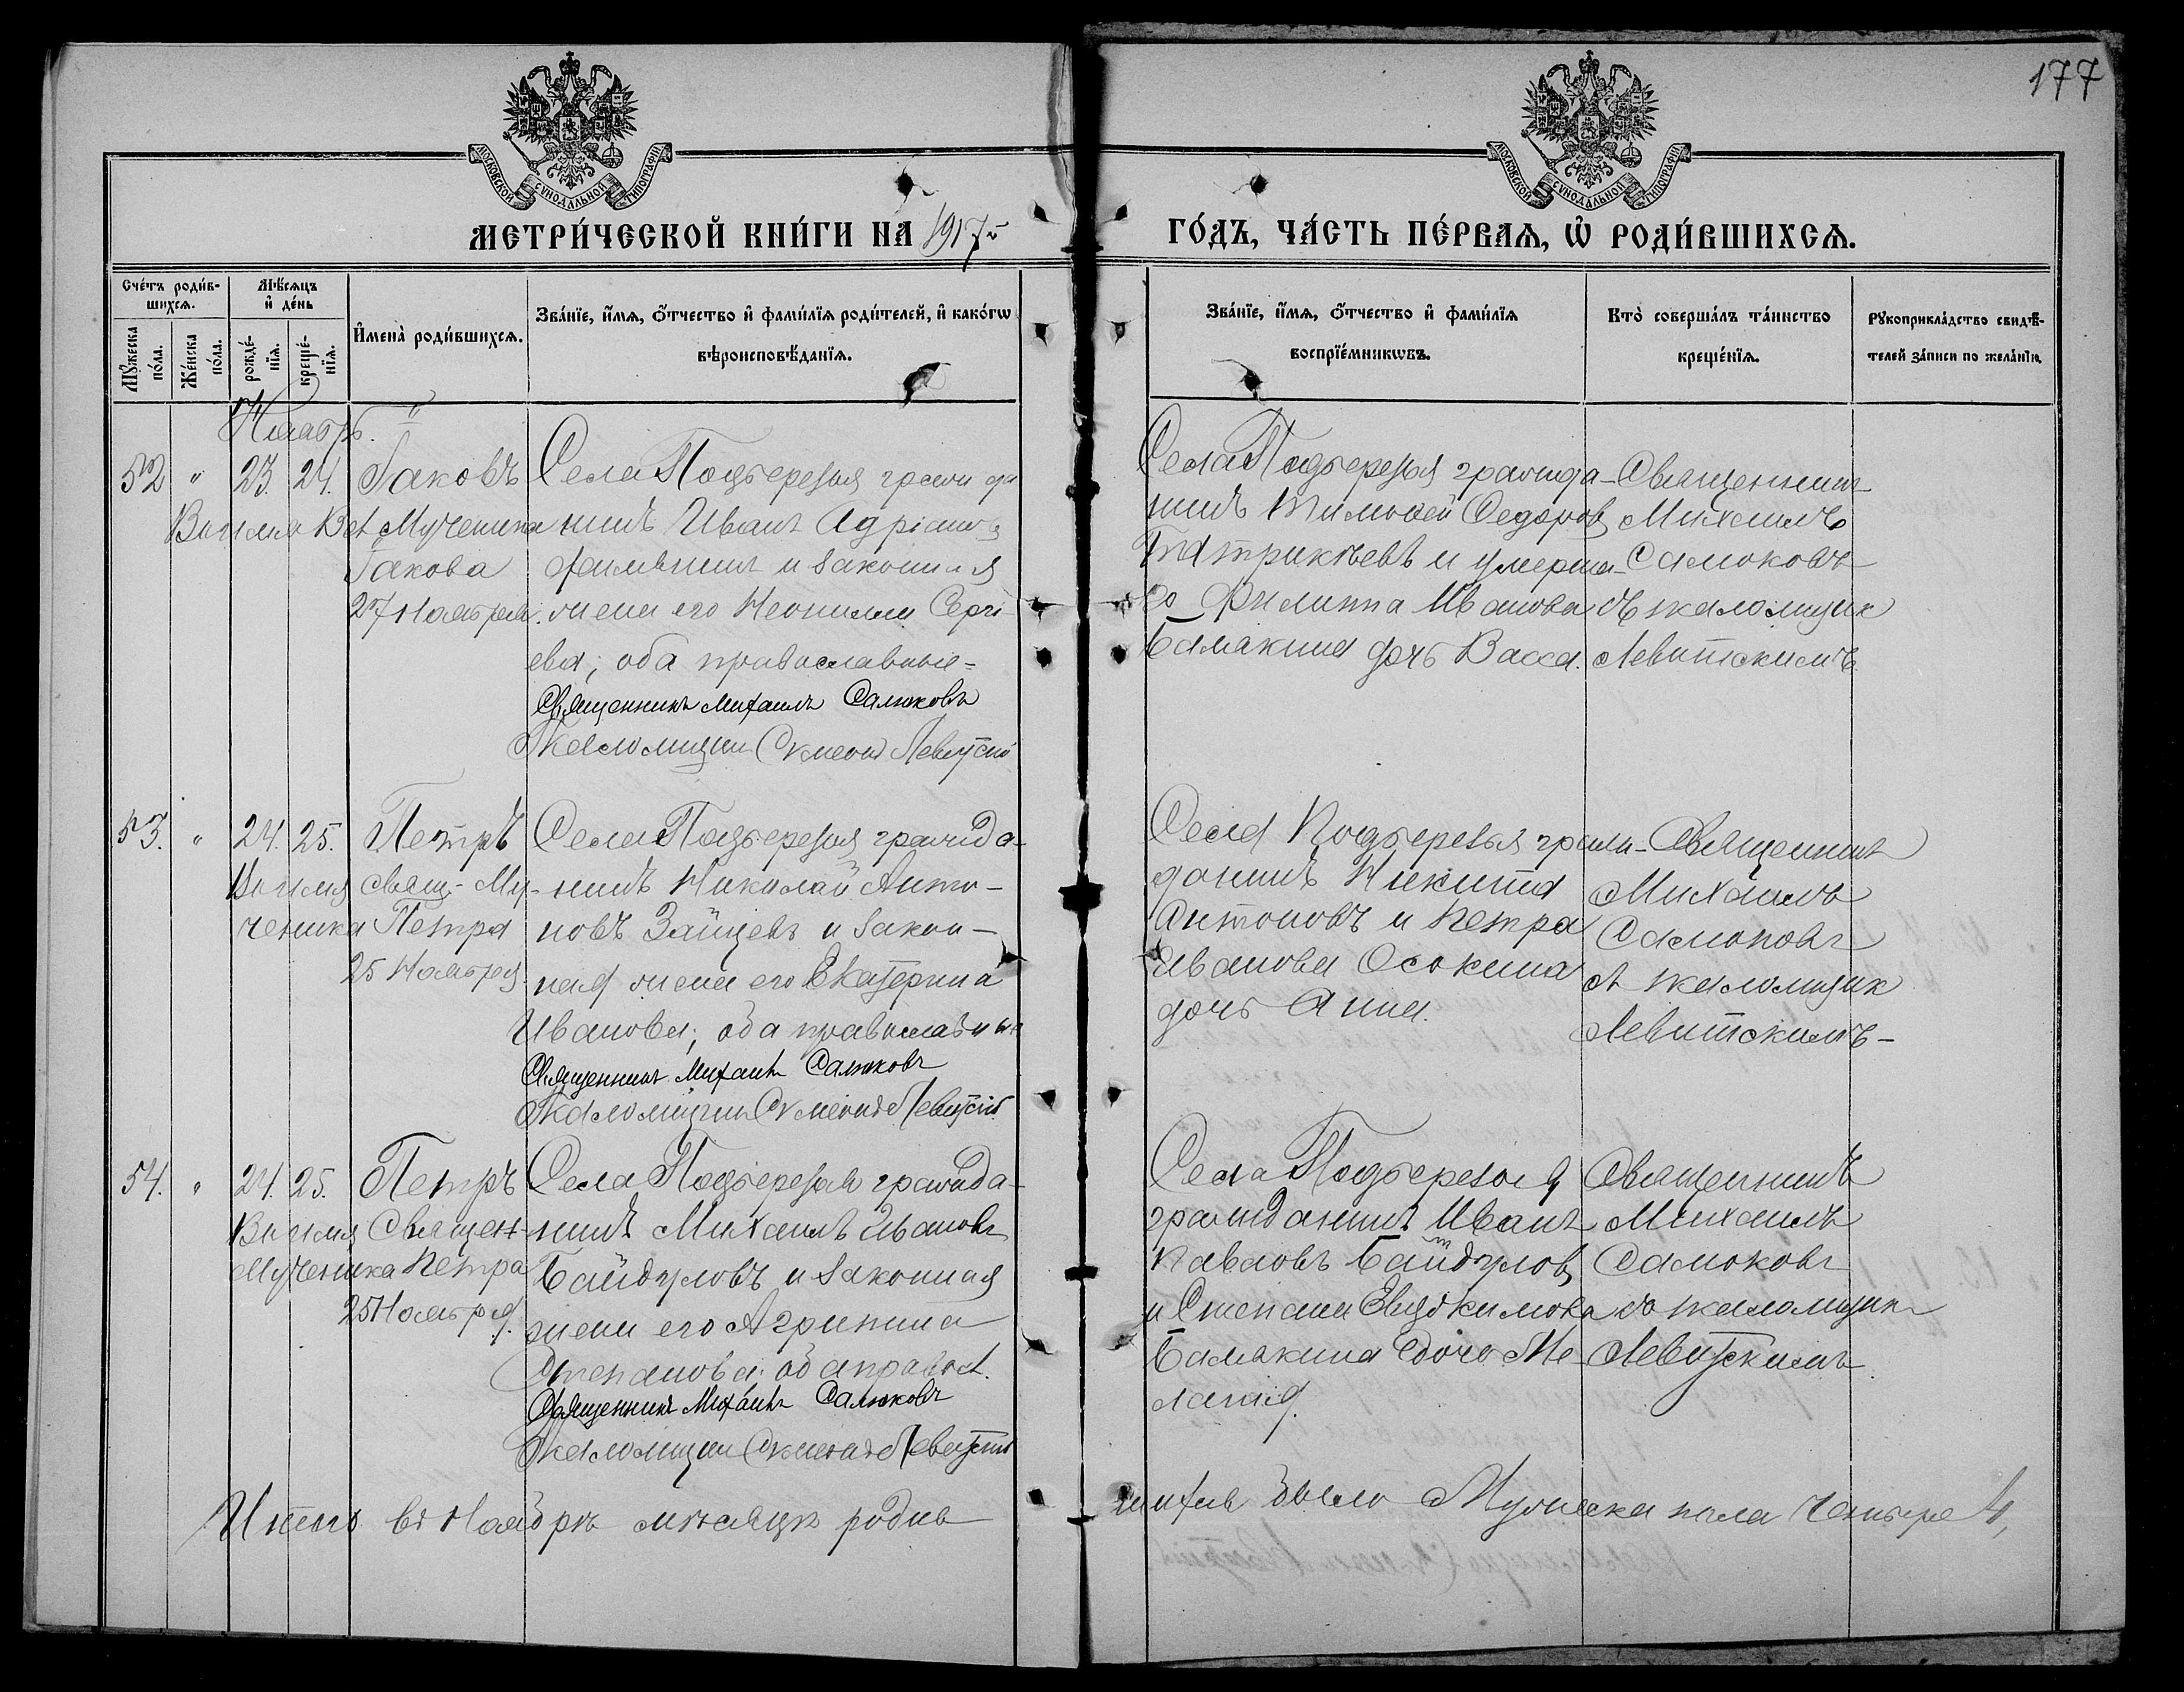 177
МОСКОВСКОЙ СУНОДАЛЬНОЙ ТИПОГРАФІИ
МОСКОВСКОЙ СУНОДАЛЬНОЙ ТИПОГРАФІИ
МЕТРИ́ЧЕСКОЙ КНИ́ГИ НА 1917й
ГО́ДЪ, ЧА́СТЬ ПЕ́РВАЯ, Ѡ РОДИ́ВШИХСЯ.
Сче́тъ роди́в-
шихся.
Мужеска
по́ла.
Же́нска
по́ла.
Мѣ́сяцъ
и де́нь
рожде́-
нїя.
креще́-
нїя.
Имена̀ роди́вшихся.
Зва́нїе, и́мя, о́тчество и фами́лїя роди́телей, и како́гѡ
вѣроисповѣ́данїя.
Зва́нїе, и́мя, о́тчество и фами́лїя
воспрїе́мникѡвъ.
Кто̀ соверша́лъ та́инство
креще́нїя.
Рукоприкла́дство свидѣ́-
телей за́писи по жела́нїю.
Ноябрь.
52 " 23. 24. Іаковъ
Во имя Вел Мученика
Іакова
27 Ноября.
Села Подберезья гражда
нинъ Иванъ Адріанов
и законная
жена его Неонилла Серги
ева, оба православные
Священникъ Михаилъ Салюковъ
Псаломщикъ Сѵмеонъ Левитскій
Села Подберезья гражда-
нинъ Тимоѳей Ѳедоров
Патрикѣевъ и умерша-
го Филиппа Иванова
Бамакина дочь Васса.
Священник
Михаилъ
Салюковъ
съ псаломщик
Левитскимъ
53. " 24. 25. Петръ
Во имя свящ.-Му-
ченика Петра
25 Ноября
Села Подберезья гражда-
нинъ Николай Анто-
новъ Зайцевъ и закон-
ная жена его Екатерина
Иванова, оба православные
Священникъ Михаилъ Салюковъ
Псаломщикъ Сѵмеонъ Левитскій
Села Подберезья граж-
данинъ Никита
Антоновъ и Петра
Иванова Осокина
дочь Анна.
Священник
Михаилъ
Салюковъ
съ псаломщик
Левитскимъ-
54. " 24. 25. Петръ
Во имя Священ-
мученика Петра
25 Ноября.
Села Подберезья гражда-
нинъ Михаилъ Ивановъ
Байдуловъ и законная
жена его Агрипина
Степанова, оба правосл.
Священникъ Михаилъ Салюковъ
Псаломщикъ Сѵмеонъ Левитскій
Села Подберезья
гражданинъ Иванъ
Павловъ Байдулов
и Степана Евдокимова
Бамакина дочь Ме-
ланія.
Священникъ
Михаилъ
Салюковъ
съ псаломщик
Левитскимъ
Итого въ Ноябрѣ мѣсяцѣ родив
шихся было Мужеска пола четыре 4,